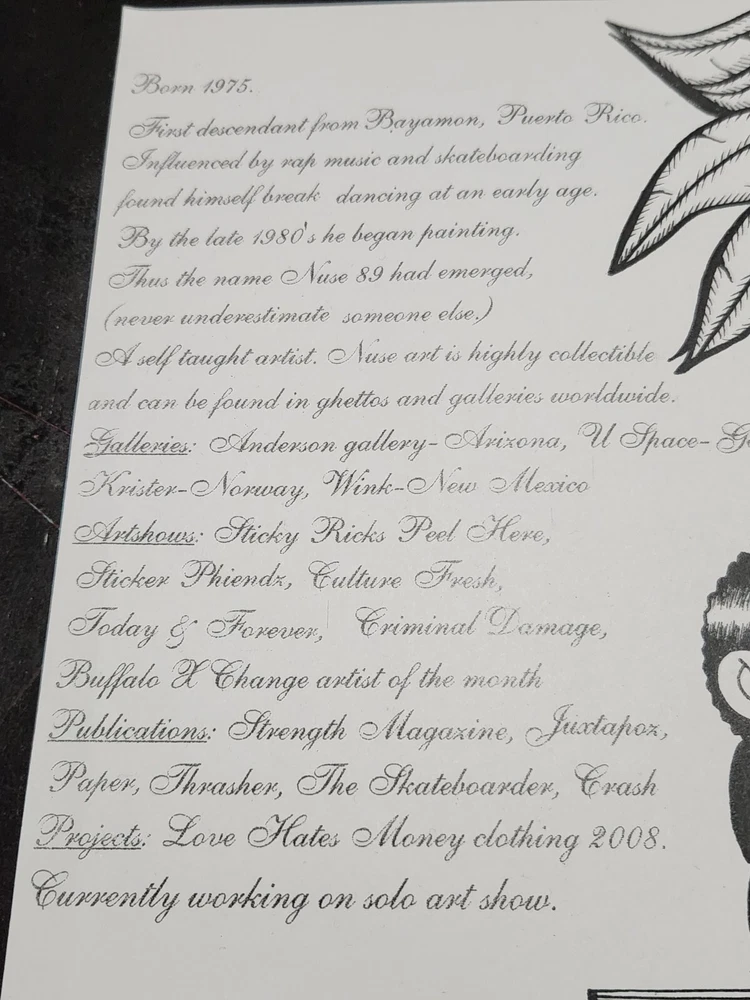 Born 1975.
First descendant from Bayamon, Puerto Rico.
Influenced by rap music and skateboarding
found himself break dancing at an early age.
By the late 1980's he began painting.
Thus the name Nuse 89 had emerged,
(never underestimate someone else.)
A self taught artist. Nuse art is highly collectible
and can be found in ghettos and galleries worldwide.
Galleries: Anderson gallery- Arizona, U Space-
Krister-Norway, Wink-New Mexico
Artshows: Sticky Ricks Peel Here,
Sticker Phiendz, Culture Fresh,
Today & Forever, Criminal Damage,
Buffalo X Change artist of the month
Publications: Strength Magazine, Juxtapoz,
Paper, Thrasher, The Skateboarder, Crash
Projects: Love Hates Money clothing 2008.
Currently working on solo art show.